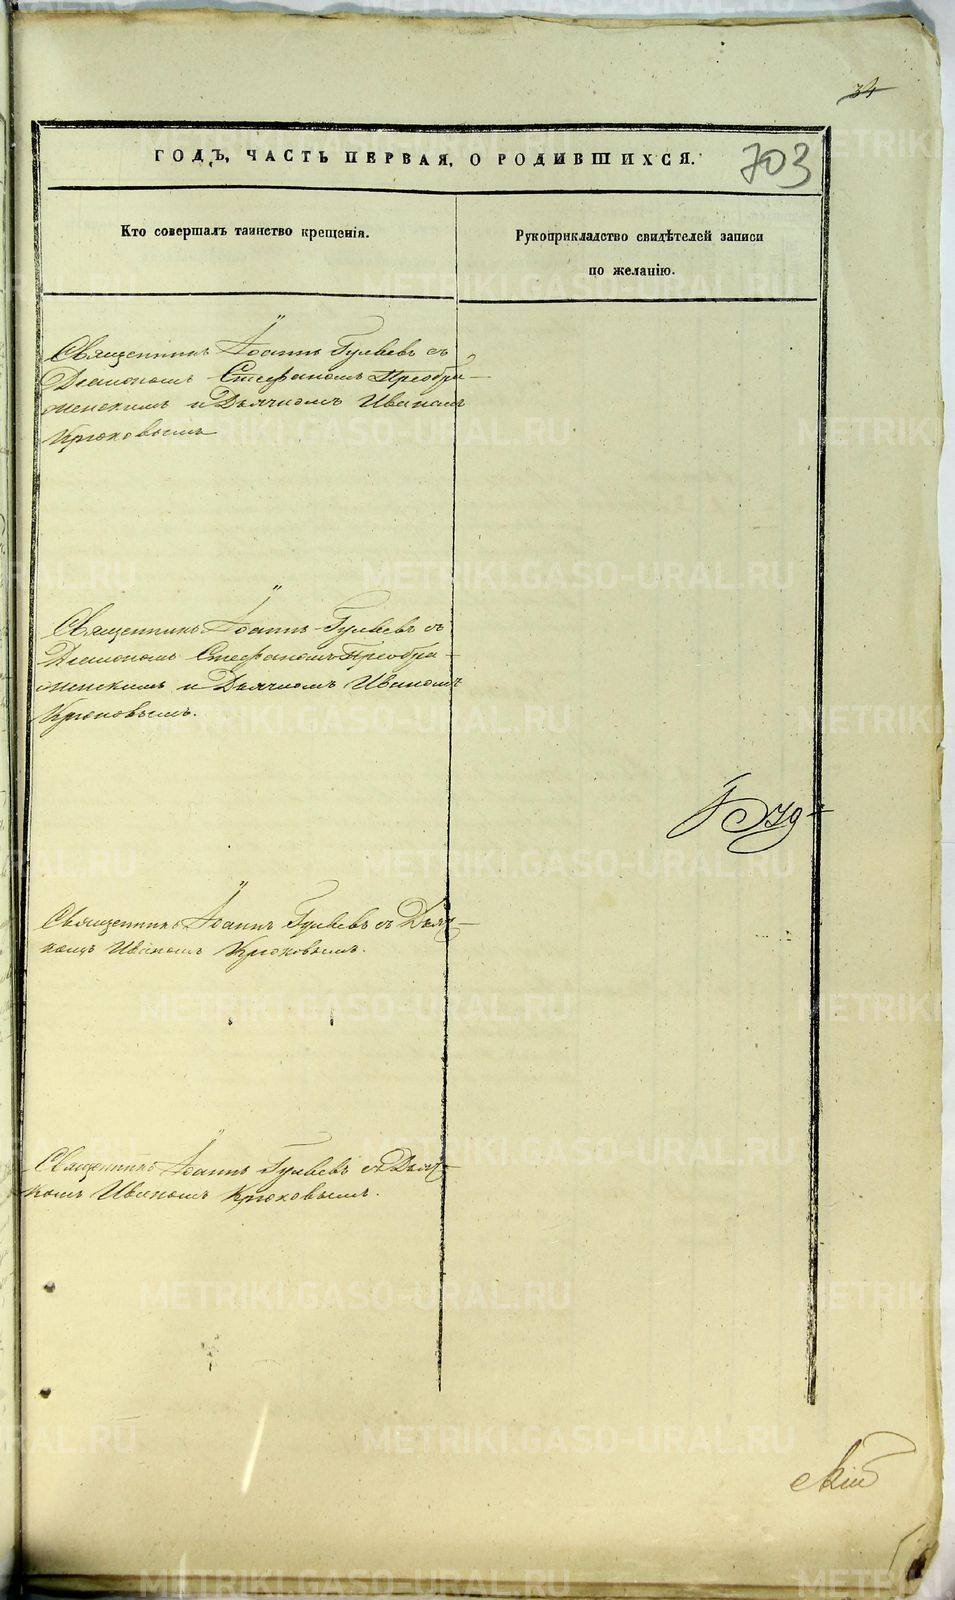 34
ГОДЪ, ЧАСТЬ ПЕРВАЯ, О РОДИВШИХСЯ.
703
Кто совершалъ таинство крещенія.
Рукоприкладство свидѣтелей записи
по желанію.
Священникъ Іоаннъ Гуляевъ съ
Діакономъ Стефаномъ Преобра-
женскимъ и Дьячкомъ Иваномъ
Крюковымъ
Священникъ Іоаннъ Гуляевъ съ
Діакономъ Стефаномъ Преобра-
женскимъ и Дьячкомъ Иваномъ
Крюковымъ.
Священникъ Іоаннъ Гуляевъ съ Дьяч-
комъ Иваномъ Крюковымъ.
Священникъ Іоаннъ Гуляевъ съ Дьяч-
комъ Иваномъ Крюковымъ.
скій
METRIKI.GASO-URAL.RU